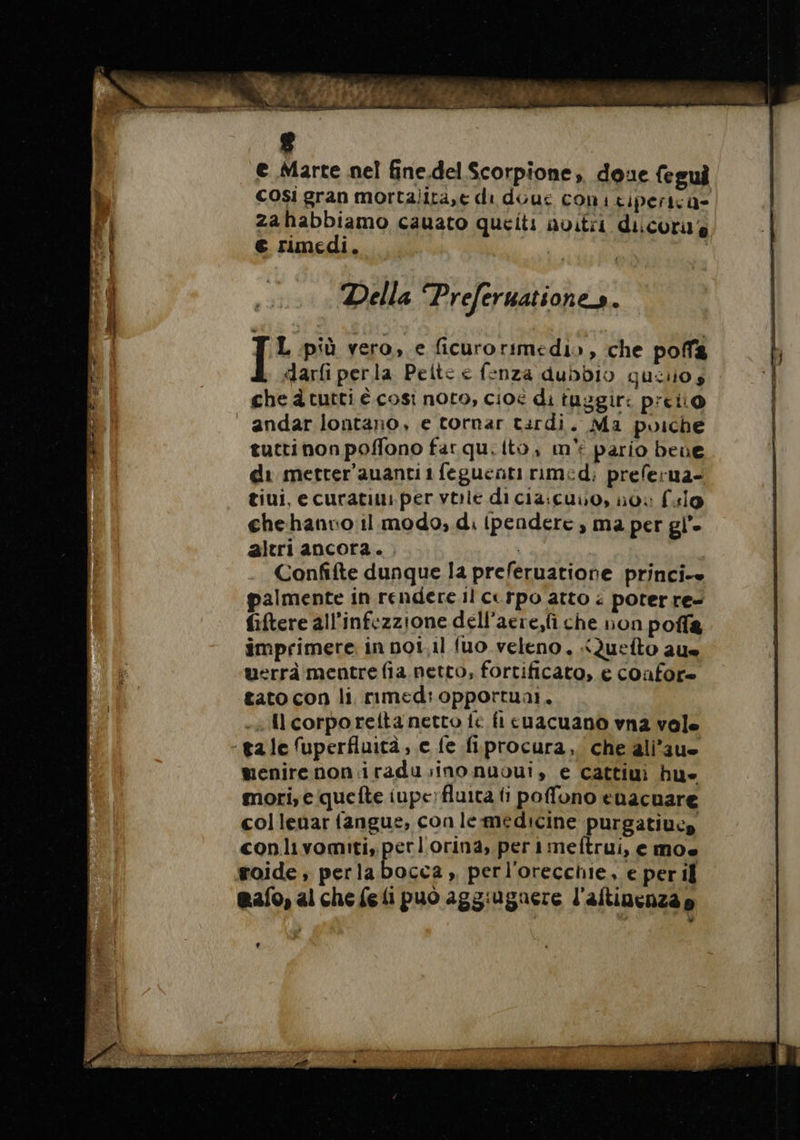 8
e Marte nel fine del Scorpione, doue ſeguì
cosi gran mortalità, e di doue con i esperien-
za habbiamo cauato queſti noſtri diſcorſi,
e rimedi.
Della Preſeruatione.
IL più vero, e ſicuro rimedio, che poſſa
darſi per la Peſte e ſenza dubbio quello,
che à tutti è cosi noto, cioè di fuggir: preſto
andar lontano, e tornar tardi. Ma poiche
tutti non poſſono far queſto, m'è parſo bene
di metter'auanti i ſeguenti rimedi preſerua-
tiui, e curatiui per vtile di ciaſcuno, non ſolo
che hanno il modo, di ſpendere, ma per gl'-
altri ancora.
Conſiſte dunque la preſeruatione princi-
palmente in rendere il corpo atto à poter re-
ſiſtere all'infezzione dell'aere, ſi che non poſſa
imprimere in noi il ſuo veleno. Queſto aue-
uerrà mentre ſia netto, fortificato, e confor-
tato con li rimedi opportuni.
Il corpo reſta netto ſe ſi euacuano vna vol-
tale ſuperfluità, e ſe ſi procura, che all'aue-
uenire non i radu sino nuoui, e cattiui hu-
mori, e queſte ſuperfluità ſi poſſono euacuare
col leuar ſangue, con le medicine purgatiue,
con li vomiti, per l'orina, per i meſtrui, e mo-
roide, per la bocca, per l'orecchie, e per il
naſo, al che ſe li può aggiugnere l'aſtinenza,